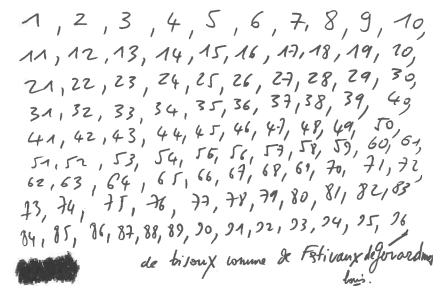 1, 2, 3, 4, 5, 6, 7, 8, 9, 10,
11, 12, 13, 14, 15, 16, 17, 18, 19, 20,
21, 22, 23, 24, 25, 26, 27, 28, 29, 30,
31, 32, 33, 34, 35, 36, 37, 38, 39, 40,
41, 42, 43, 44, 45, 46, 47, 48, 49, 50,
51, 52, 53, 54, 55, 56, 57, 58, 59, 60, 61,
62, 63, 64, 65, 66, 67, 68, 69, 70, 71, 72,
73, 74, 75, 76, 77, 78, 79, 80, 81, 82, 83
84, 85, 86, 87, 88, 89, 90, 91, 92, 93, 94, 95, 96
de bisoux comme de Festivaux de Gerardmer